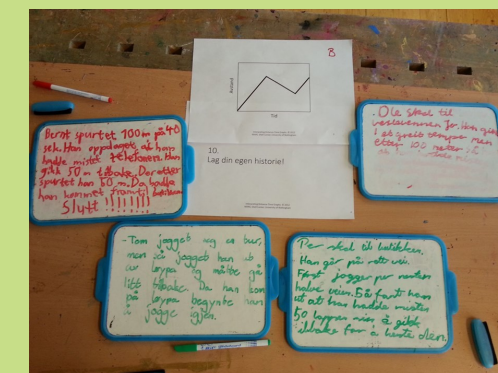 B
Avstand
Tid
10.
Lag din egen historie!
Bernt spurtet 100m på 40
sek. Han oppdaget at han
hadde mistet telefonen. Han
gikk 50 m tilbake. Der etter
spurtet han 50 m. Da hadde
han kommet fram til butikken
Slutt !!!!!!!!
. Ole skal til
bestevennen
i et greit tempo men
etter 100 meter
- Tom jogget seg en tur,
men så jogget han ut
av løypa og måtte gå
litt tilbake. Da han kom
på løypa begynte han
å jogge igjen.
Per skal til butikken.
Han går på rett vei.
Først jogger per nesten
halve veien. Så fant han
ut at han hadde mistet
50 lappen sin å gikk
tilbake for å hente den.